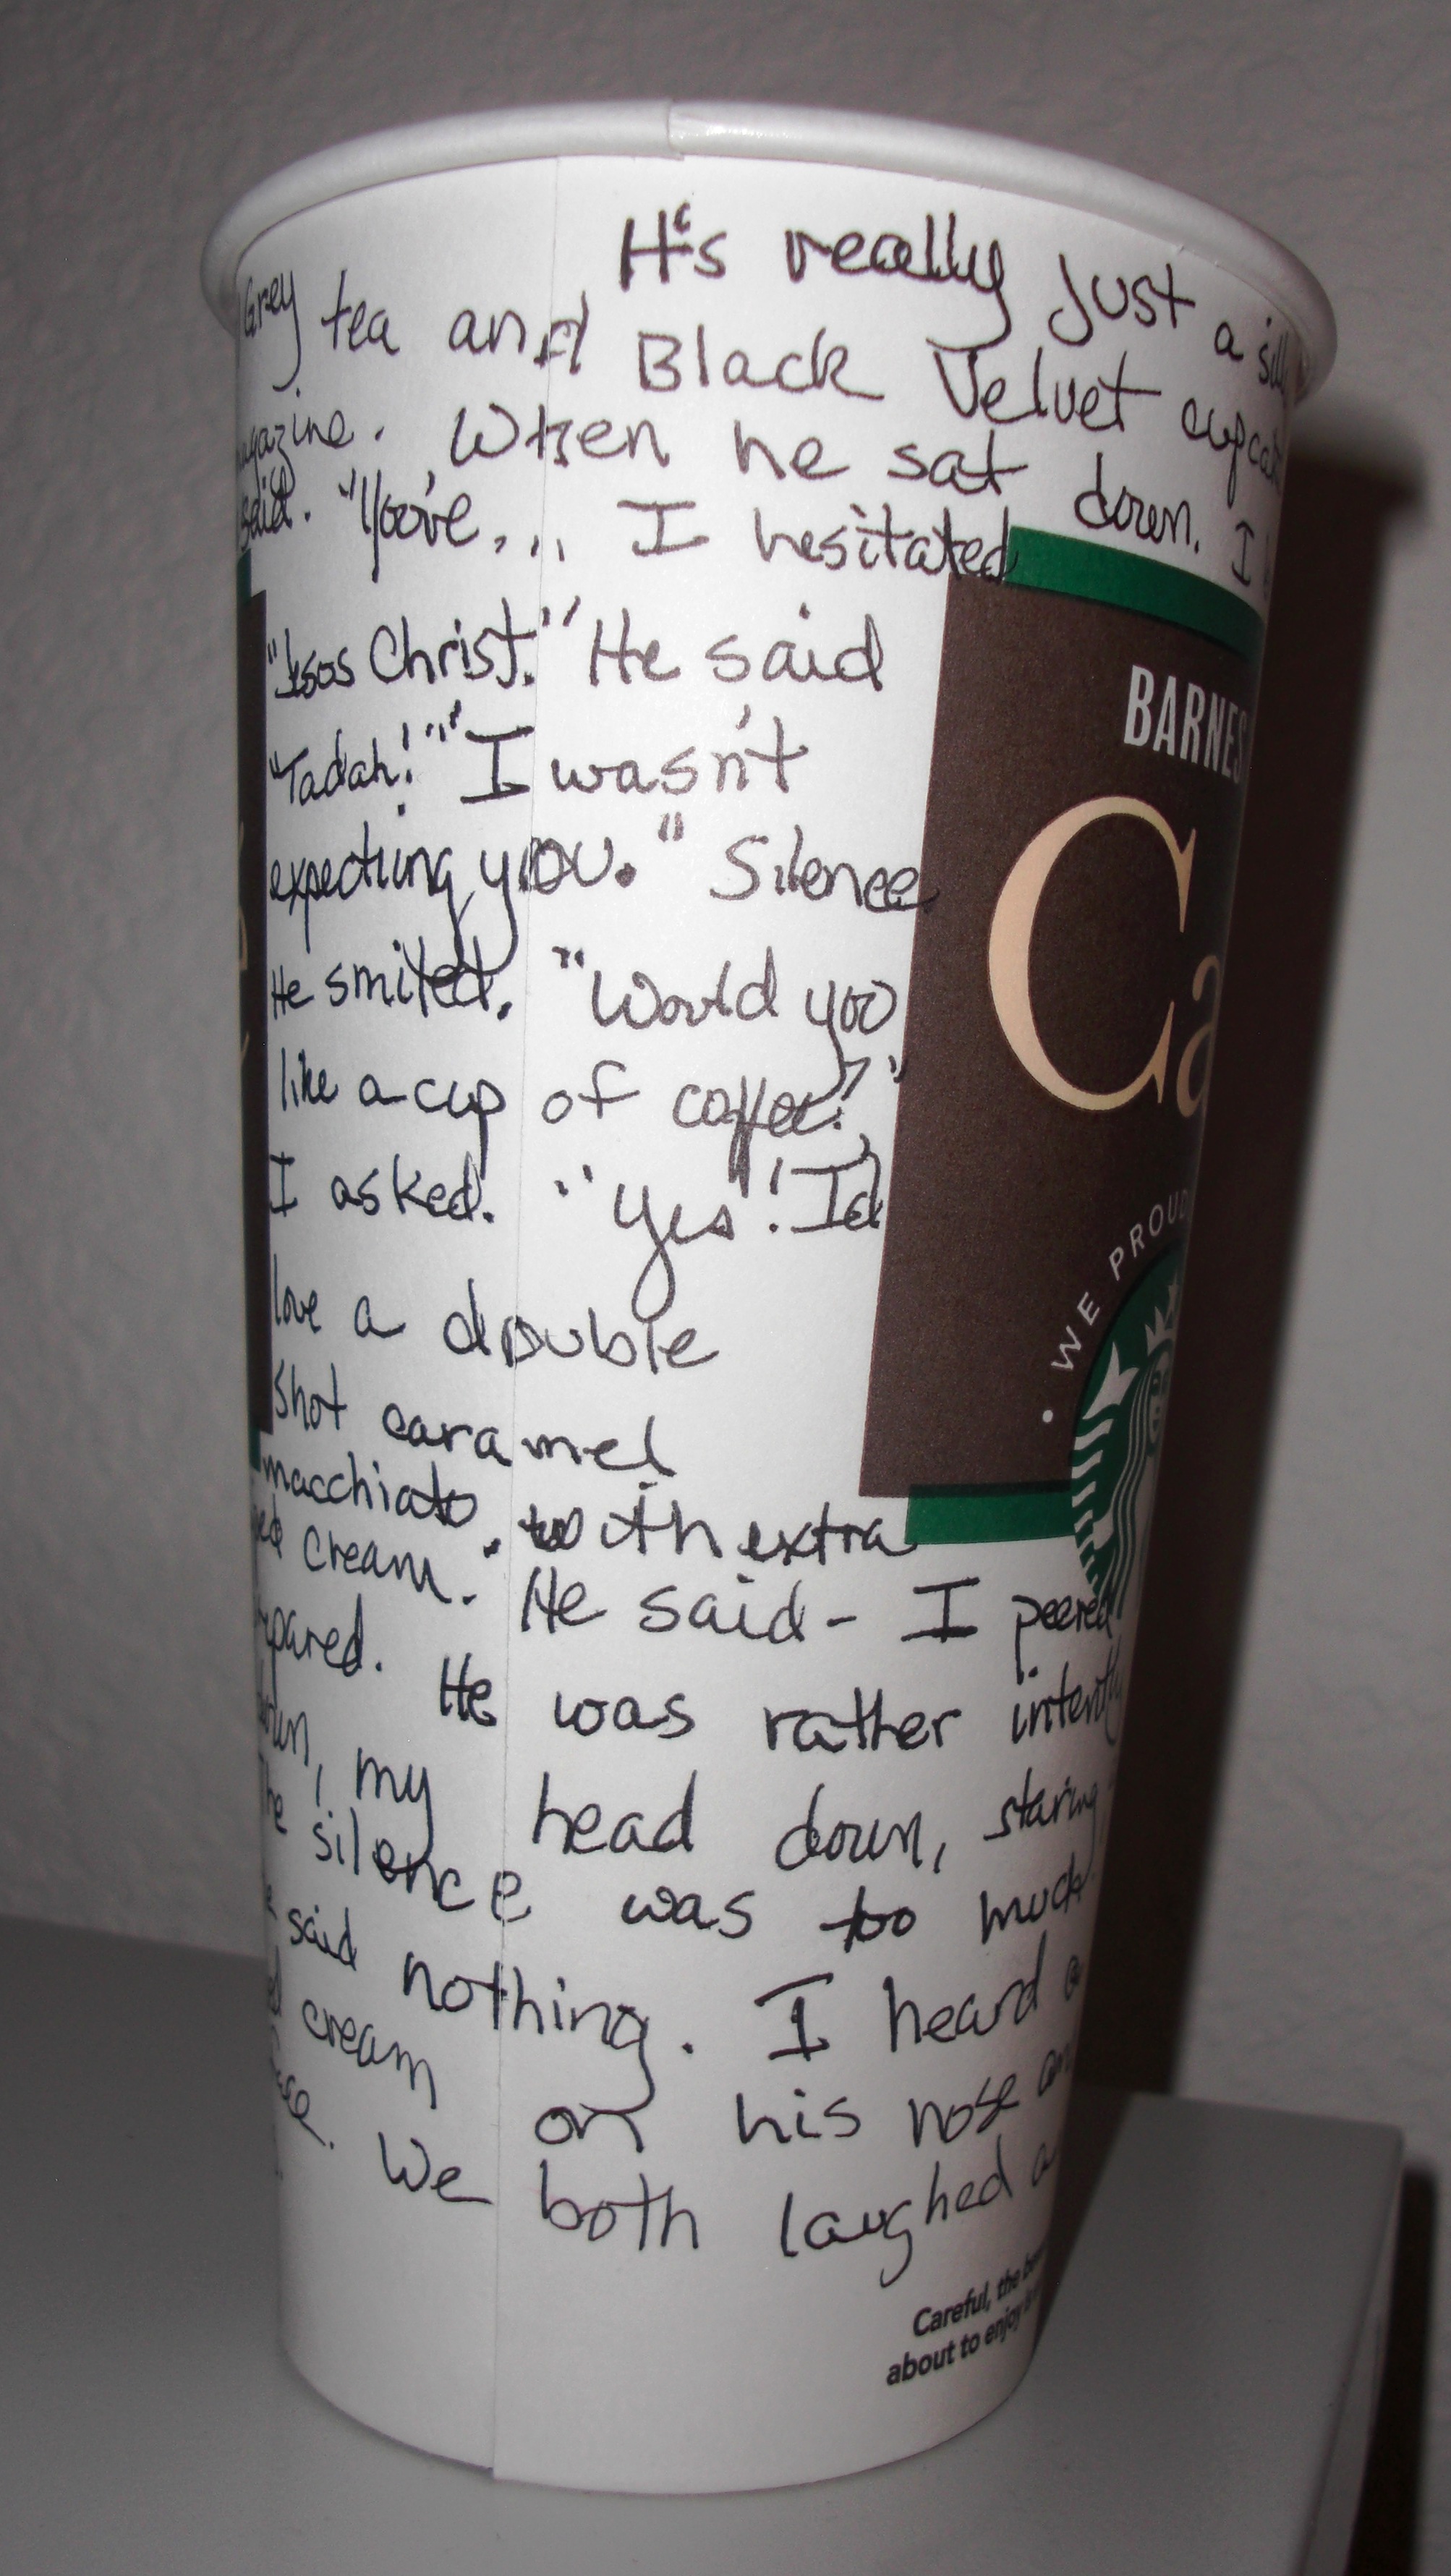 It's really just a
Grey tea and Black Velvet
When he sat down. I
said. "You've... I hesitated
"Jesus Christ." He said
"Tadah!" "I wasn't
expecting you." Silence
He smiled. "Would you
like a cup of coffee?"
I asked. "Yes! I'd
love a double
shot caramel
macchiato. with extra
cream. He said - I peered
He was rather intently
my head down, staring
The silence was too much.
said nothing. I heard a
cream on his nose
We both laughed a
BARNES
Ca
• WE PROUD
Careful, the
about to enjoy